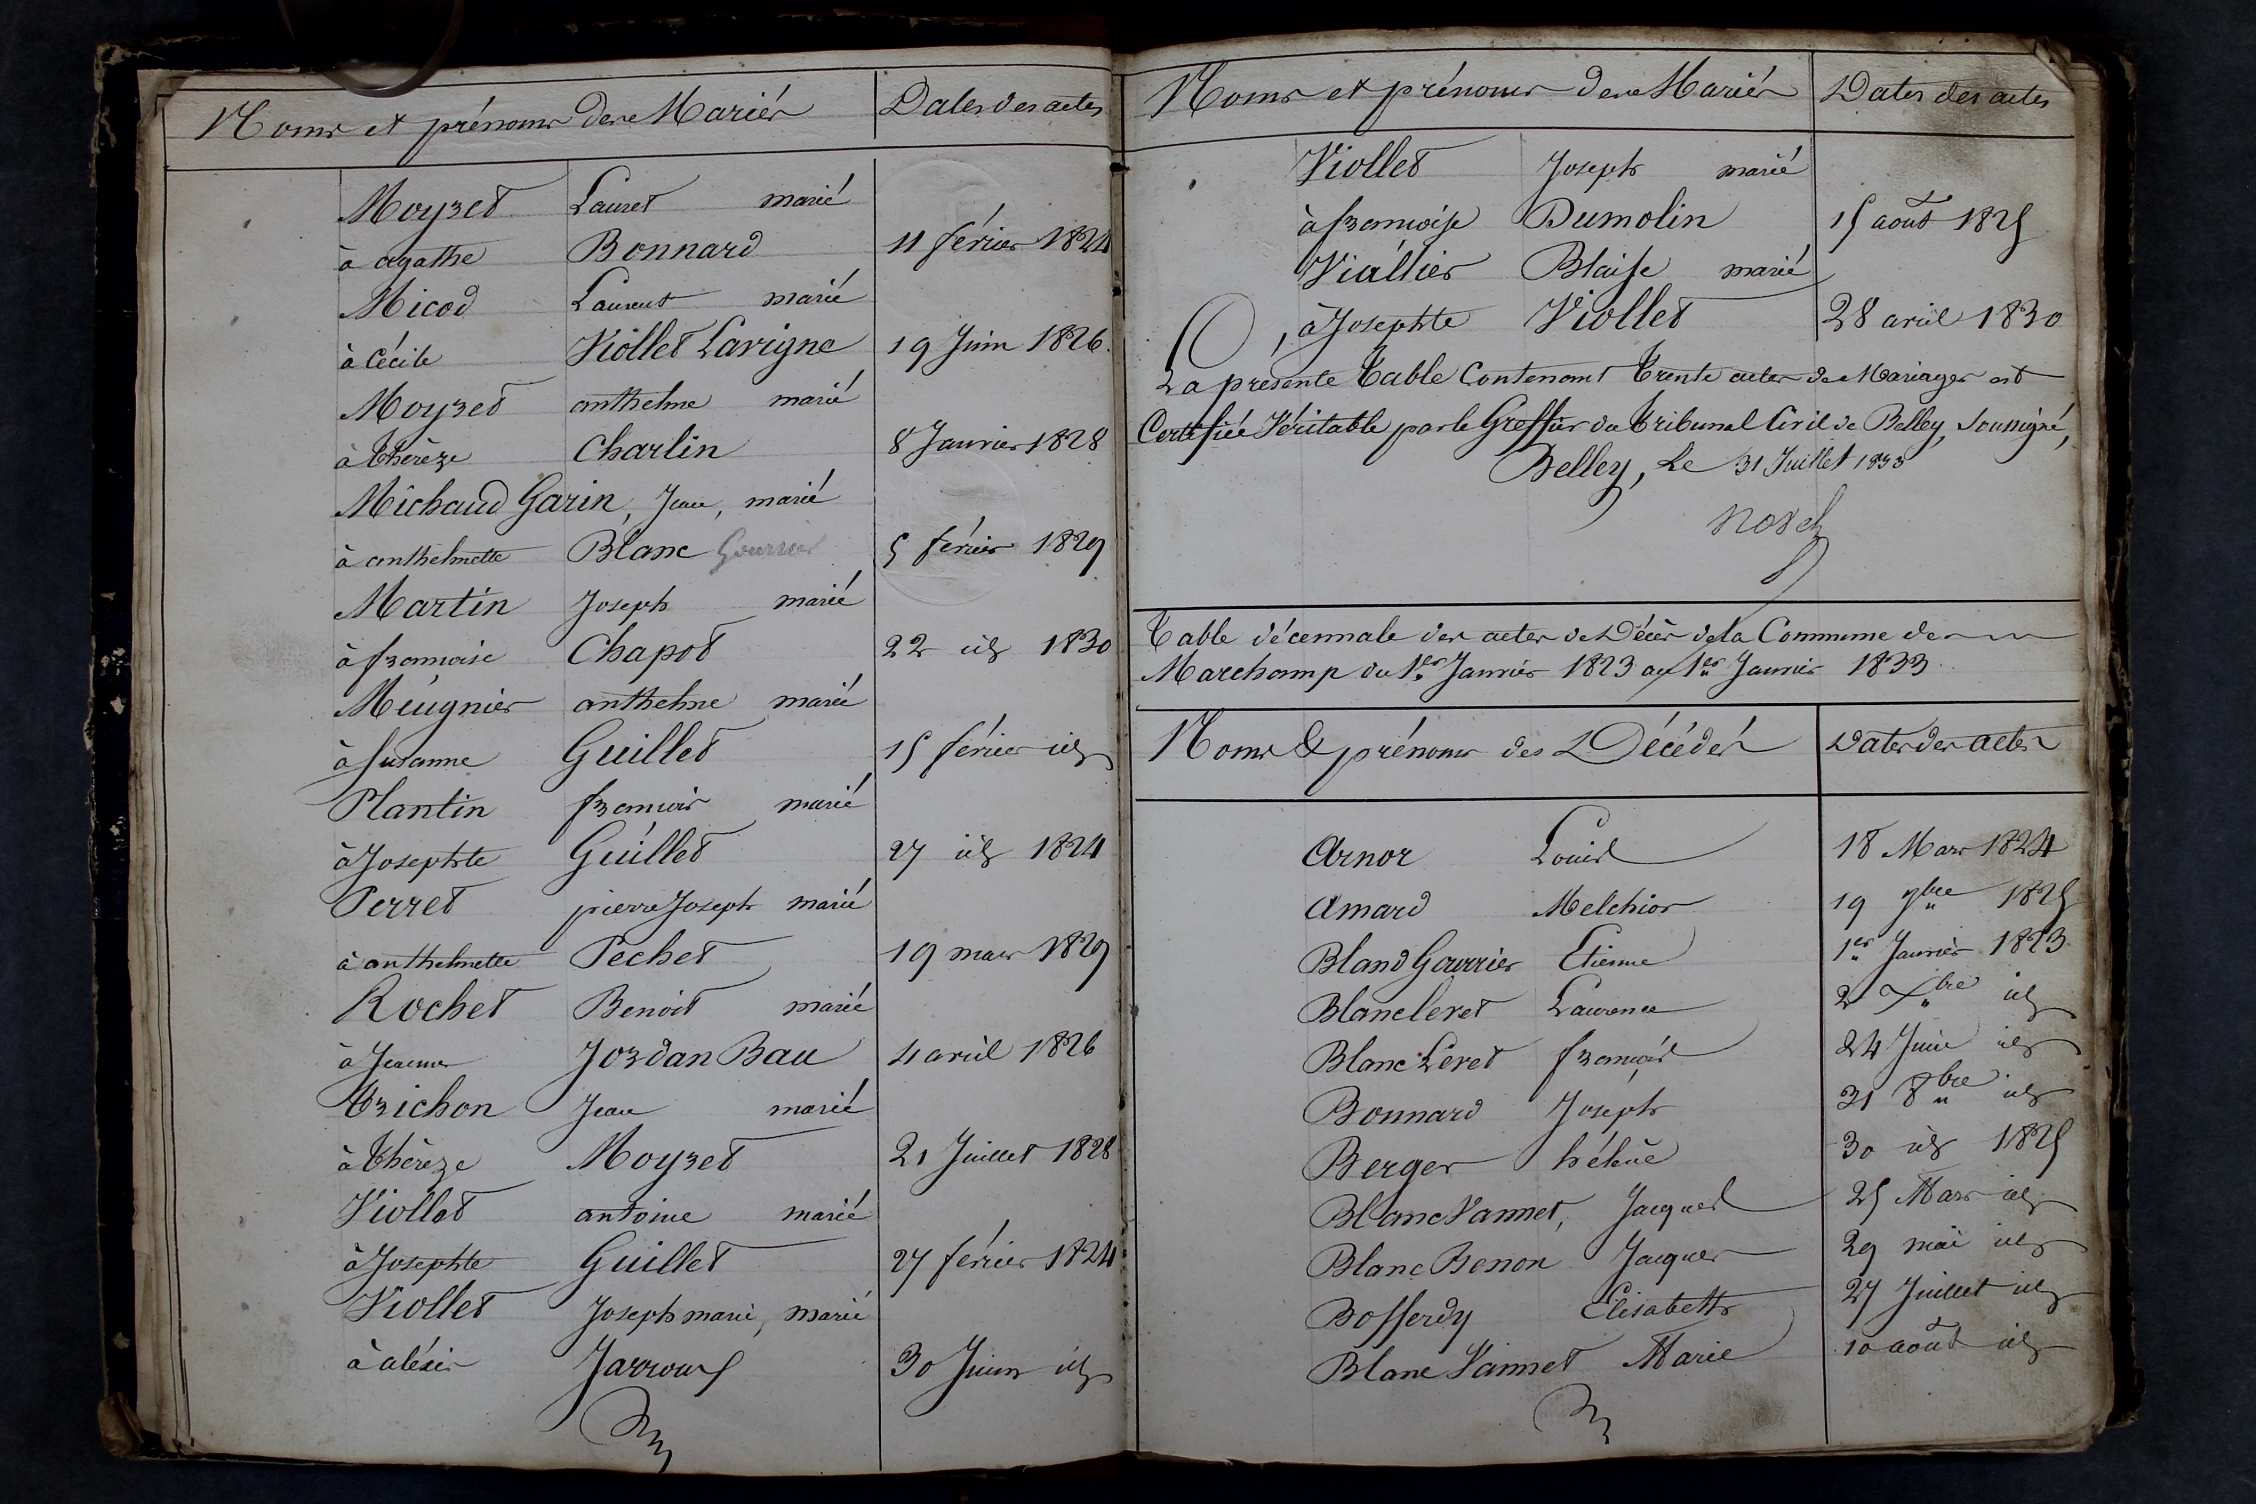 Noms et prénoms des Mariés Dates des actes
Moyret Lauret marié
à agathe Bonnard 11 février 1824
Micod Laurent marié
à Cécile Viollet Lavigne 19 Juin 1826
Moyret anthelme marié
à Thérèze Charlin 8 Janvier 1828
Michaud Garin, Jean, marié
à anthelmette Blanc Gourrier 5 février 1829
Martin Joseph marié
à françoise Chapot 22 id 1830
Meugnier anthelme marié
à Susanne Guillet 15 février id
Plantin françois marié
à Josephte Guillet 27 id 1824
Perret pierre Joseph marié
à anthelmette Pechet 19 mars 1829
Rochet Benoit marié
à Jeanne Jordan Bau 4 avril 1826
Trichon Jean marié
à Thérèze Moyret 21 Juillet 1828
Viollet antoine marié
à Josephte Guillet 27 février 1824
Viollet Joseph marie, marié
à aléxis 30 Juin id
Noms et prénoms des Mariés Dates des actes
Viollet Joseph marié
à françoise Dumolin 15 août 1825
Viallier Blaise marié
à Josephte Viollet 28 avril 1830
La présente Table Contenant Trente actes de Mariages est
Certifiée Véritable par le Greffier du Tribunal Civil de Belley, Soussigné,
Belley, Le 31 Juillet 1833
Table décennale des actes de Décès de la Commune de
Marchamp du 1er Janvier 1823 au 1er Janvier 1833
Noms & prénoms des Décédés Dates des actes
Arnor Louis 18 Mars 1824
Amard Melchior 19 7bre 1825
Bland Gourrier Etienne 1er Janvier 1823
Blancleret Laurence 2 Xbre id
Blanc Leret françois 24 Juin id
Bonnard Joseph 31 8bre id
Berger hélène 30 id 1825
Blanc Vannet, Jacques 25 Mars id
Blanc Benon Jacques 29 mai id
Bofferdy Elisabeth 27 Juillet id
Blanc Vannet Marie 10 août id